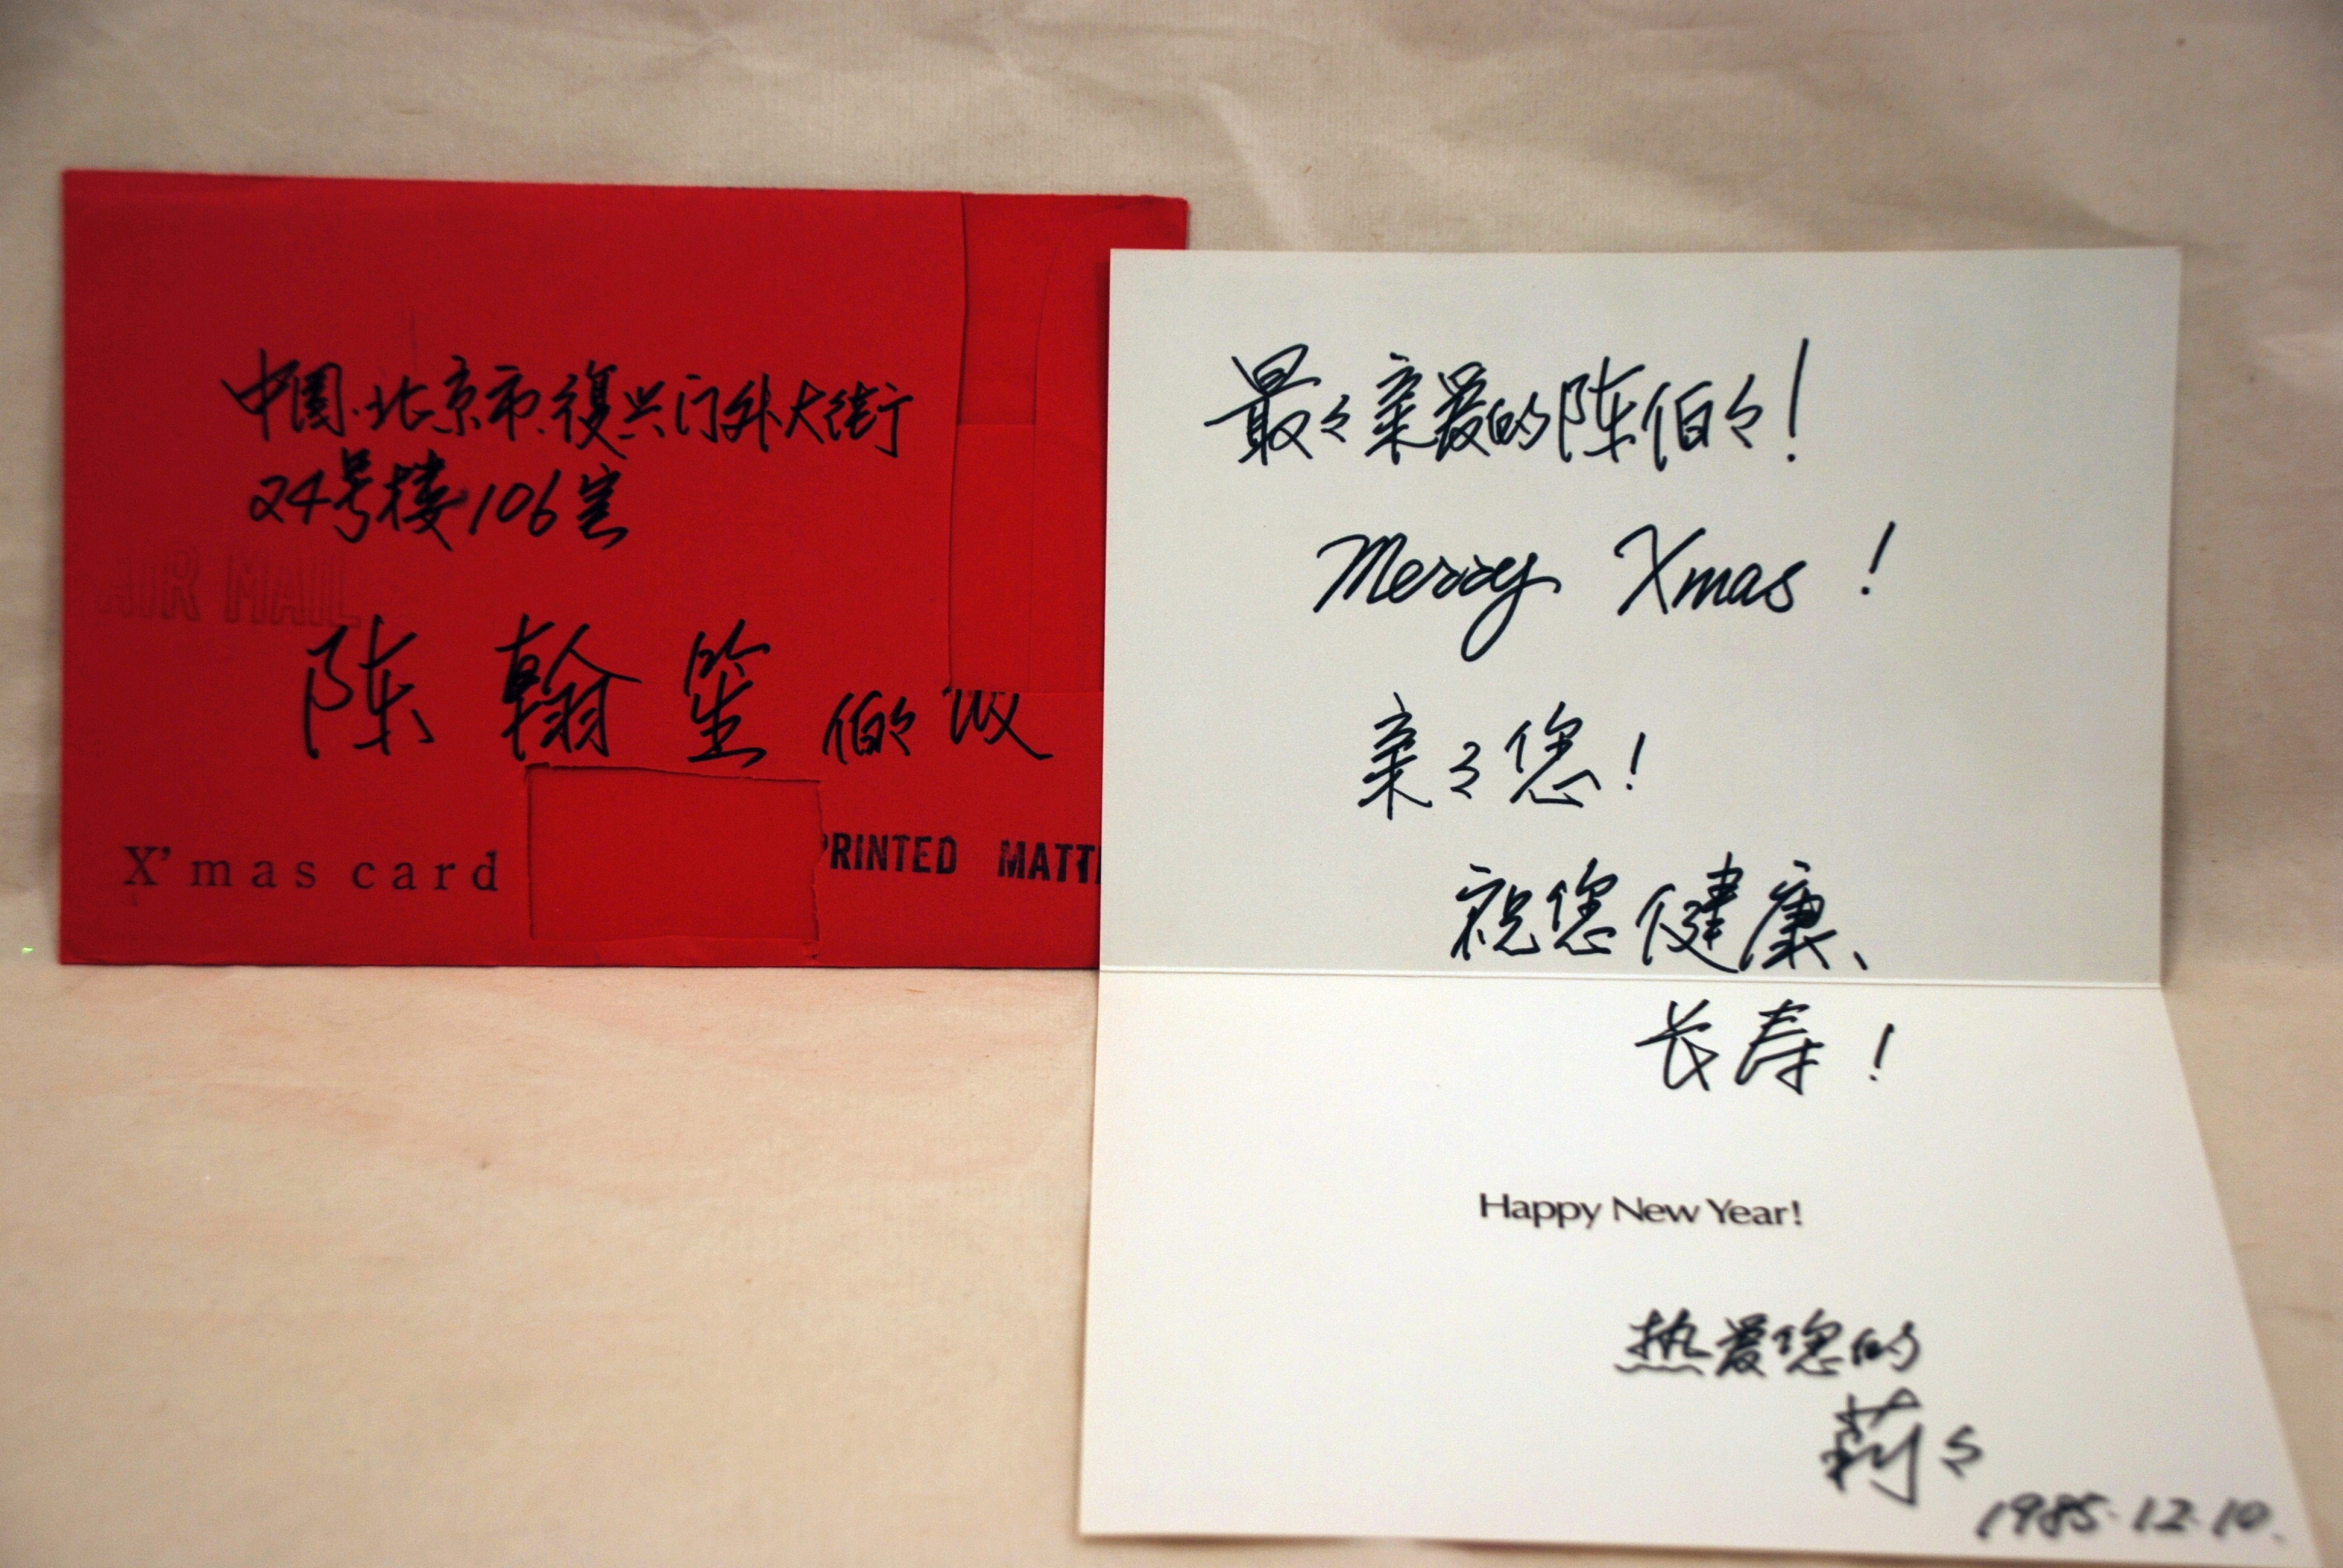 中国.北京市.復兴门外大街
24号楼106室
AIR MAIL
陈翰笙伯々收
X'mas card
PRINTED MATT
最々亲爱的陈伯々!
Merry Xmas!
亲々您!
祝您健康、
长寿!
Happy New Year!
热爱您的
莉々
1985.12.10.